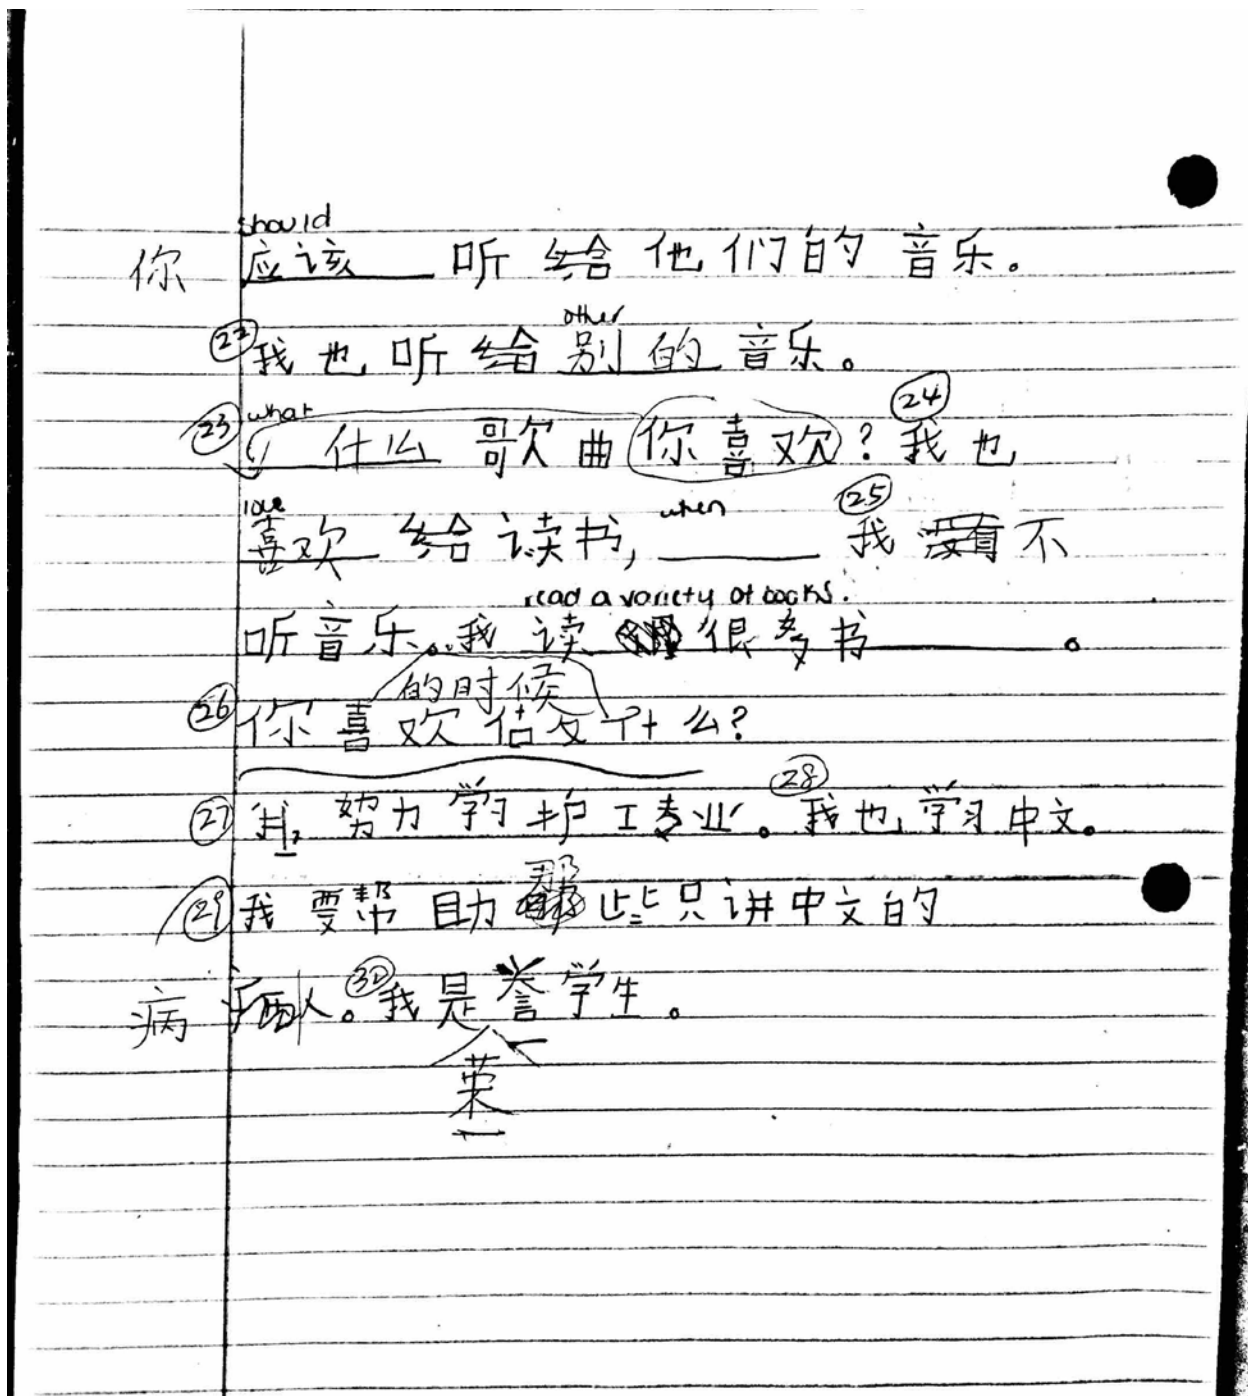 should
你 应该 听 给 他们的 音乐。
other
㉒ 我也听给别的音乐。
what
㉓ 什么 歌曲 你喜欢? ㉔ 我也
love when
喜欢 给 读书, ㉕ 我 不
read a variety of books.
听音乐。我 读 很多书 。
的时候
㉖ 你喜欢 什么?
㉗ 我 努力 学习 护工专业。㉘ 我也学习中文。
那
㉙ 我要帮助 些只讲中文的
病 人。㉚ 我是誉学生。
荣